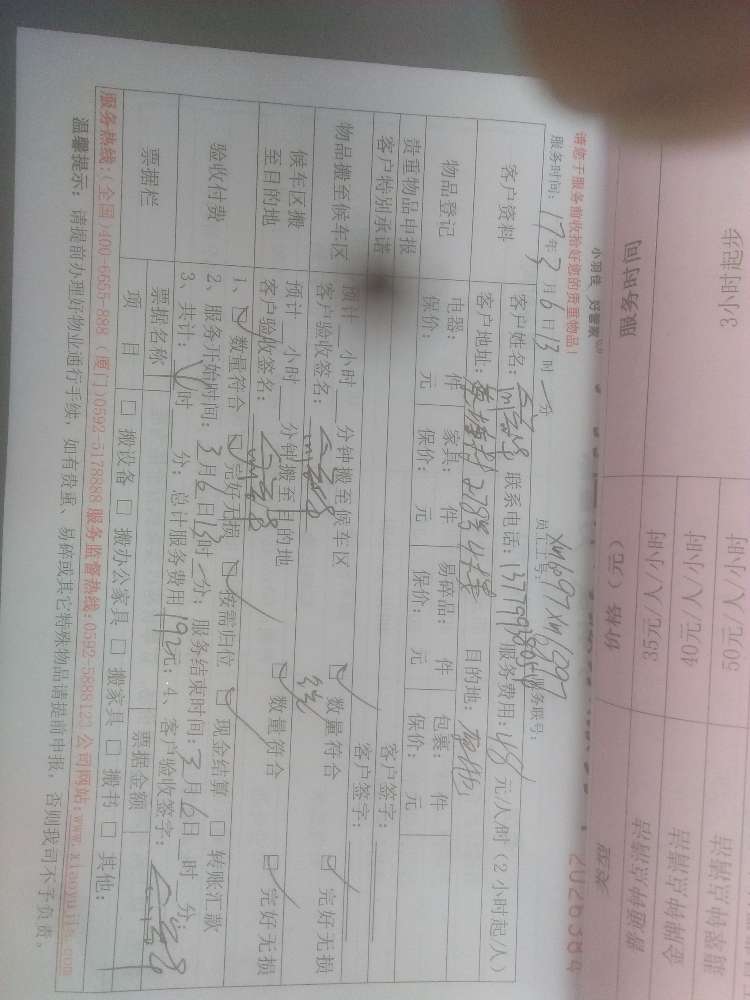 服务时间
3小时起步
价格（元）
35元/人/小时
40元/人/小时
50元/人/小时
类型
普通钟点清洁
金牌钟点清洁
翡翠钟点清洁
2026384
小羽佳 好管家
请您于服务前收拾好您的贵重物品！
员工工号：
服务账号：
服务时间：17年3月6日13时 分
客户资料
客户姓名： 联系电话： 服务费用：48元/人/时（2小时起/人）
客户地址： 目的地：
物品登记
电器： 件 家具： 件 易碎品： 件 包裹： 件
保价： 元 保价： 元 保价： 元 保价： 元
贵重物品申报 客户签字：
客户特别承诺 客户签字：
物品搬至候车区
预计 小时 分钟搬至候车区
客户验收签名： ☑ 数量符合 ☑ 完好无损
候车区搬至目的地
预计 小时 分钟搬至目的地
客户验收签名： ☑ 数量符合 ☑ 完好无损
验收付费
1、☑ 数量符合 ☑ 完好无损 ☑ 按需归位 ☑ 现金结算 □ 转账汇款
2、服务开始时间：3月6日13时 分；服务结束时间：3月6日 时 分；
3、共计： 时 分；总计服务费用192元；4、客户验收签字：
票据栏
票据名称 票据金额
项目 □ 搬设备 □ 搬办公家具 □ 搬家具 □ 搬书 □ 其他：
服务热线：（全国）400-6655-888（厦门）0592-5178888 服务监督热线：0592-5888123 公司网站：www.xiaoyujia.com
温馨提示：请提前办理好物业通行手续，如有贵重、易碎或其它特殊物品请提前申报，否则我司不予负责。